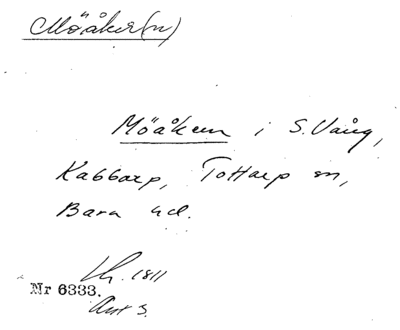 Möåker(n)
Möåkern i S. Vång,
Kabbarp, Tottarp sn,
Bara hd.
Lh. 1811
Nr 6333.
Akt 3.